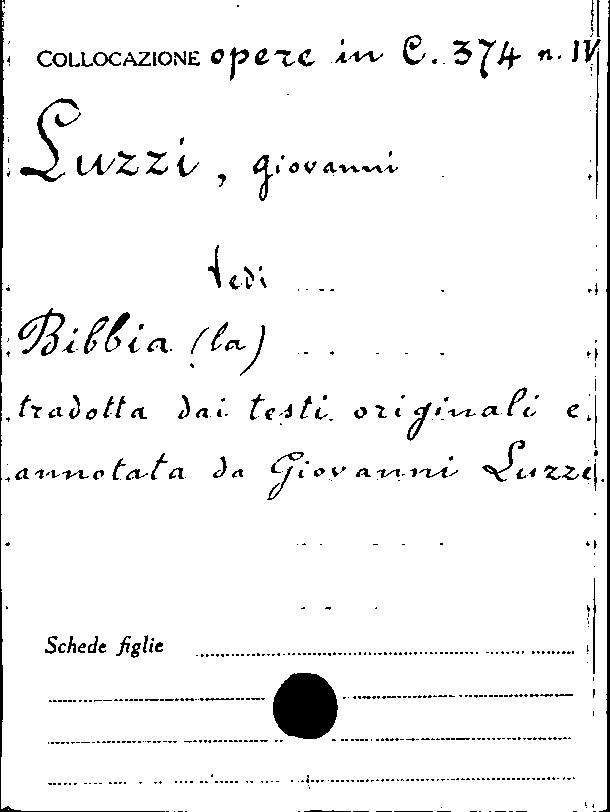 COLLOCAZIONE opere in C. 374 n. IV
Luzzi, giovanni
vedi
Bibbia (la)
tradotta dai testi originali e
annotata da Giovanni Luzzi
Schede figlie